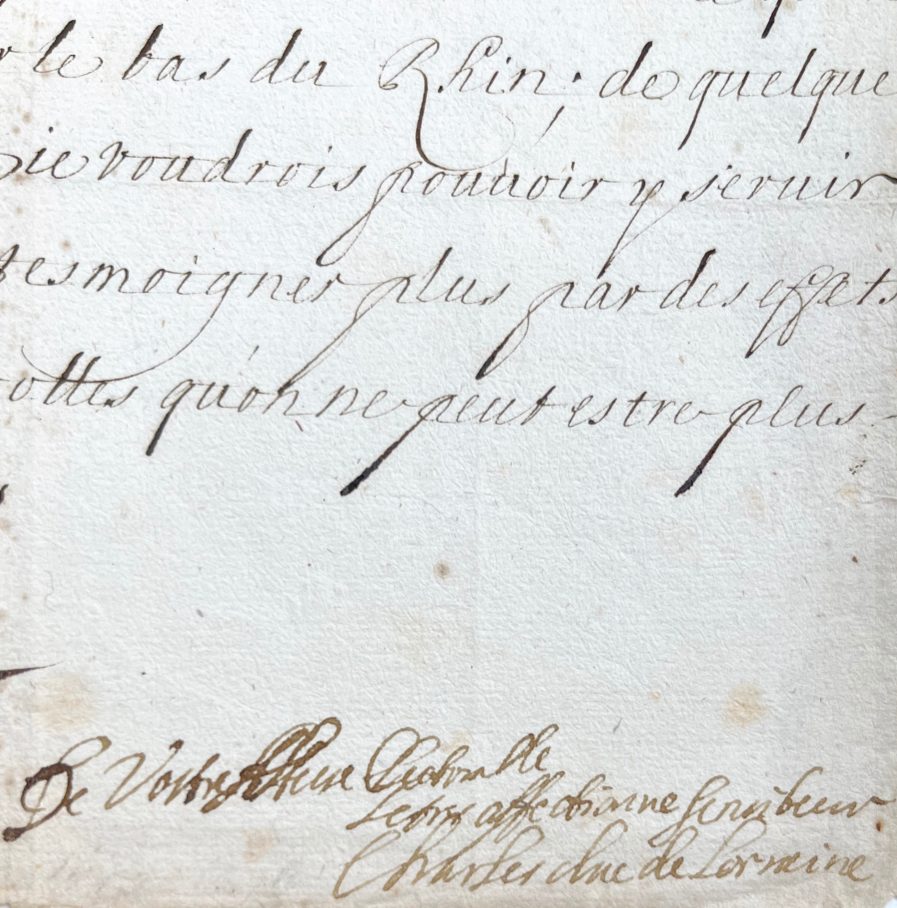 le bas du Rhin; de quelque
ie voudrois pouuoir y seruir
tesmoigner plus par des effets
qu'on ne peut estre plus
De Vostre Altesse Electoralle
Le tres affectionne seruiteur
Charles duc de Lorraine